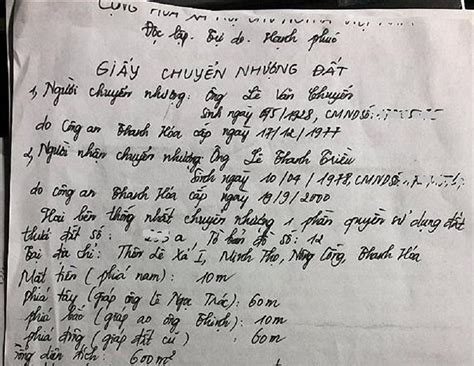 CỘNG HÒA XÃ HỘI CHỦ NGHĨA VIỆT NAM
Độc lập. Tự do. Hạnh phúc
GIẤY CHUYỂN NHƯỢNG ĐẤT
1, Người chuyển nhượng: Ông Lê Văn Chuyền
Sinh ngày /5/1928, CMND Số:
do Công an Thanh Hóa cấp ngày 17/12/1977
2, Người nhận chuyển nhượng: Ông Lê Thanh Triều
Sinh ngày 10/04/1978, CMND Số:
do công an Thanh Hóa cấp ngày 19/9/2000
Hai bên thống nhất chuyển nhượng 1 phần quyền sử dụng đất
thửa đất số: a, Tờ bản đồ số: 12
Tại địa chỉ: Thôn Lê Xá I, Minh Thọ, Nông Cống, Thanh Hóa
Mặt tiền (phía nam): 10m
phía tây (giáp ông Lê Ngọc Trác): 60m
phía bắc (giáp ao ông Thịnh): 10m
phía đông (giáp đất cũ) : 60m
Tổng diện tích: 600m²